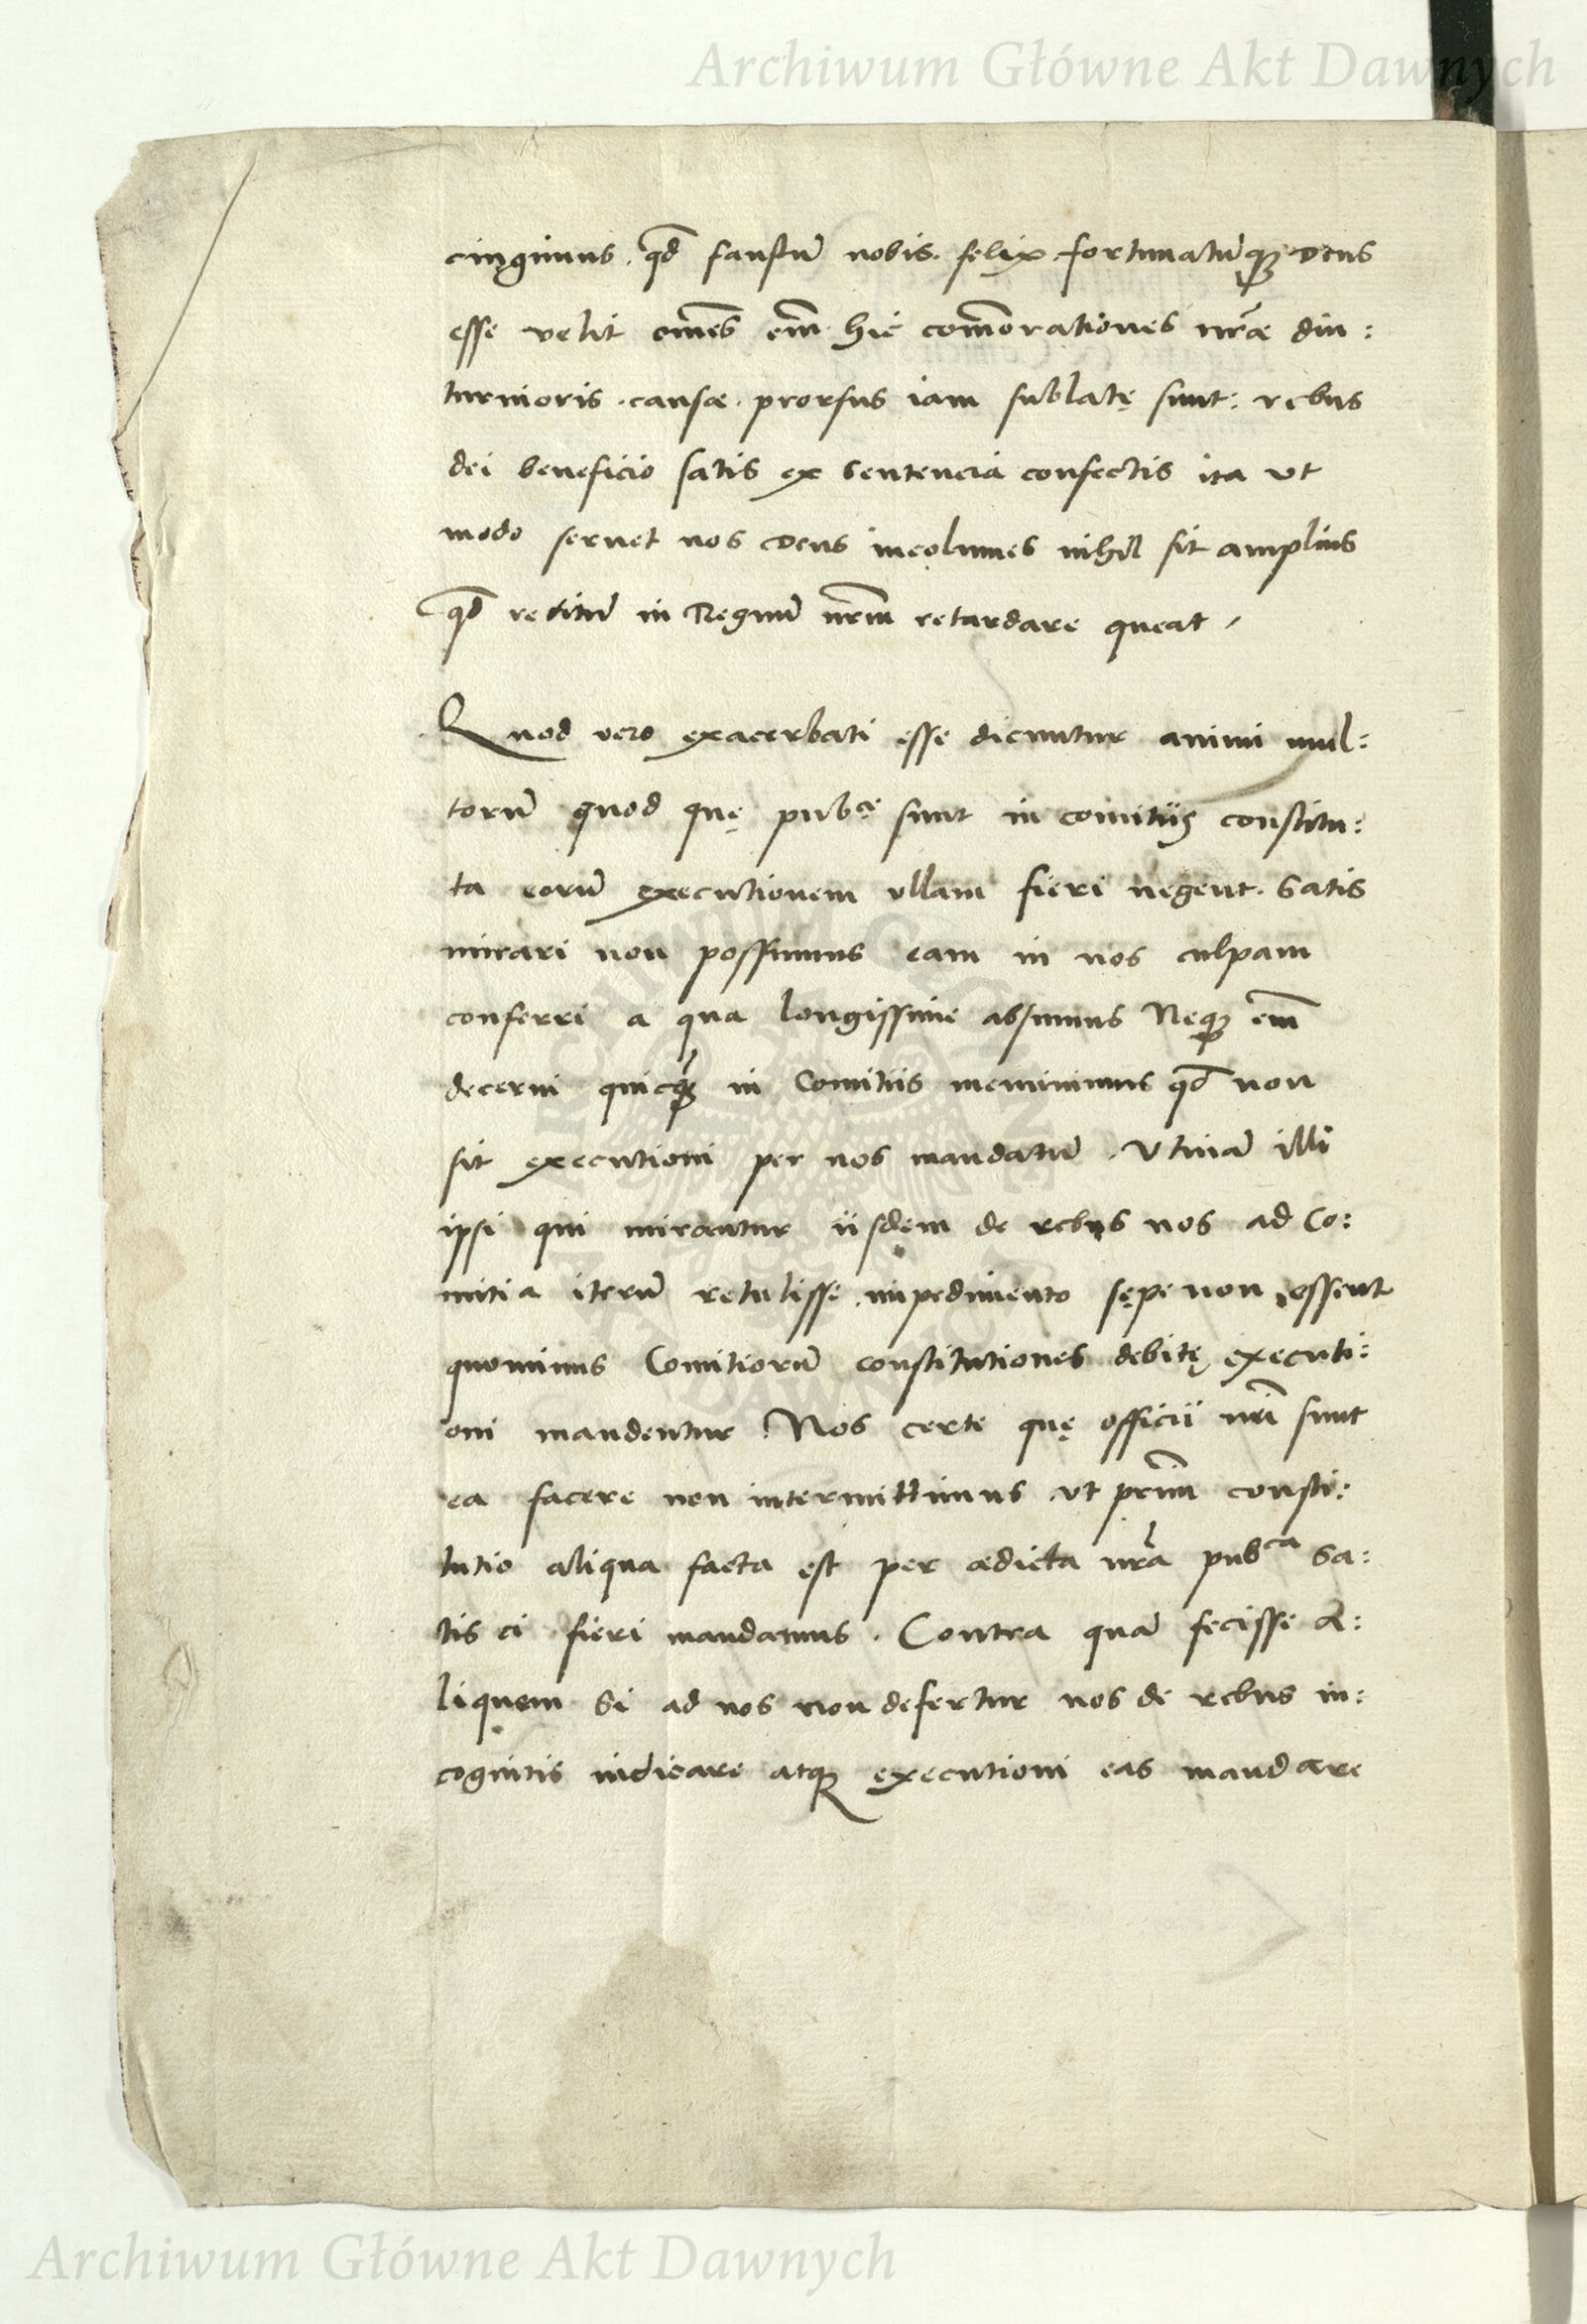 Archiwum Główne Akt Dawnych
cingimus. qd̄ faustū nobis. felix. fortunatūq; Deus
esse velit om̄es em̄ hic com̄orationes nr̄æ diu:
turnioris. causæ. prorsus iam sublatę sunt: rebus
dei beneficio satis ex sentencia confectis ita ut
modo servet nos Deus incolumes nihil sit amplius
qd̄ reditū in Regnū nr̄m retardare queat /
Quod vero exacerbati esse dicuntur animi mul:
torū quod quę pubcę sunt in comitiis constitu:
ta eorū executionem ullam fieri negent. Satis
mirari non possumus eam in nos culpam
conferri a qua longissime absumus Neq; em̄
decerni quicq̄ in Comitiis meminimus qd̄ non
sit executioni per nos mandatū. Utinā illi
ipsi qui mirantur iisdem de rebus nos ad Co:
mitia iterū retulisse. impedimento sępe non essent
quominus Comitiorū constitutiones debitę executi:
oni mandentur. Nos certe quę officii nr̄i sunt
ea facere non intermittimus. ut prim̄ consti:
tutio aliqua facta est per ædicta nr̄a pubca sa:
tis ei fieri mandamus. Contra quā fecisse a:
liquem si ad nos non defertur nos de rebus in:
cognitis iudicare atq; executioni eas mandare
Archiwum Główne Akt Dawnych